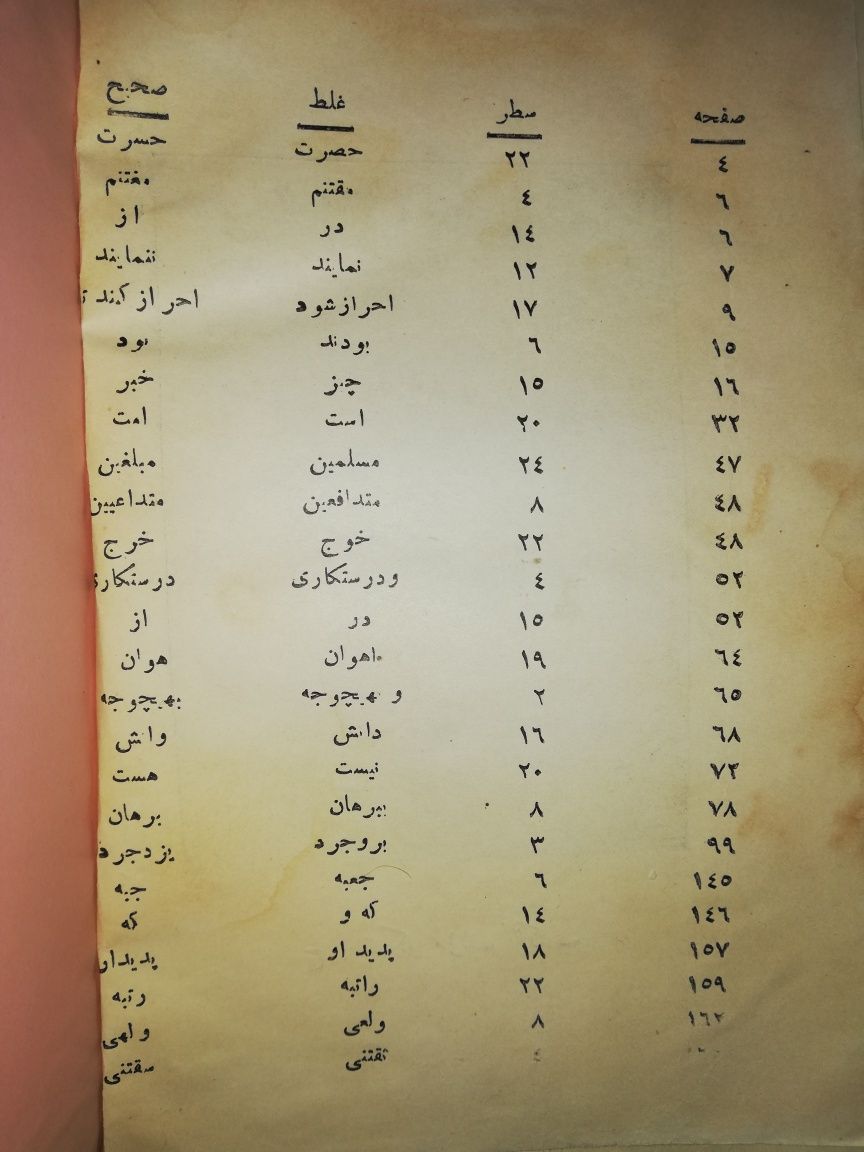 صفحه سطر غلط صحیح
٤ ٢٢ حصرت حسرت
٦ ٤ مقتنم مغتنم
٦ ١٤ در از
٧ ١٢ نمایند ننمایند
٩ ١٧ احرازشود احراز کنند
١٥ ٦ بودند بود
١٦ ١٥ چیز خبر
٣٢ ٢٠ است امت
٤٧ ٢٤ مسلمین مبلغین
٤٨ ٨ متدافعین متداعیین
٤٨ ٢٢ خوج خرج
٥٢ ٤ ودرستکاری درستکاری
٥٢ ١٥ در از
٦٤ ١٩ اهوان هوان
٦٥ ٢ و بهیچوجه بهیچوجه
٦٨ ١٦ دانش وانش
٧٢ ٢٠ نیست هست
٧٨ ٨ ببرهان برهان
٩٩ ٣ بروجرد یزدجرد
١٤٥ ٦ جعبه جبه
١٤٦ ١٤ که و که
١٥٧ ١٨ پدید او پدیداو
١٥٩ ٢٢ راتبه رتبه
١٦٢ ٨ ولعی ولهی
٤ تقتنی سقتنی